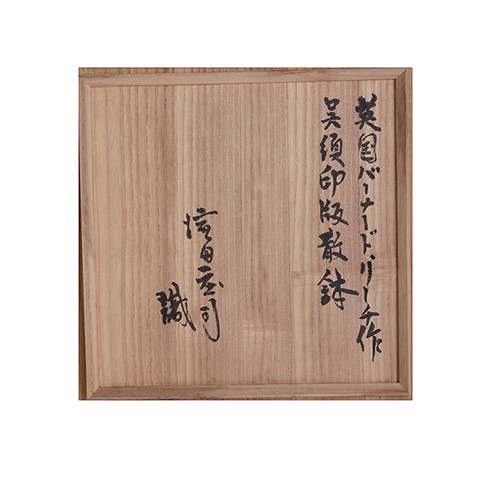 英国バーナードリーチ作
呉須印版散鉢
濱田庄司
識